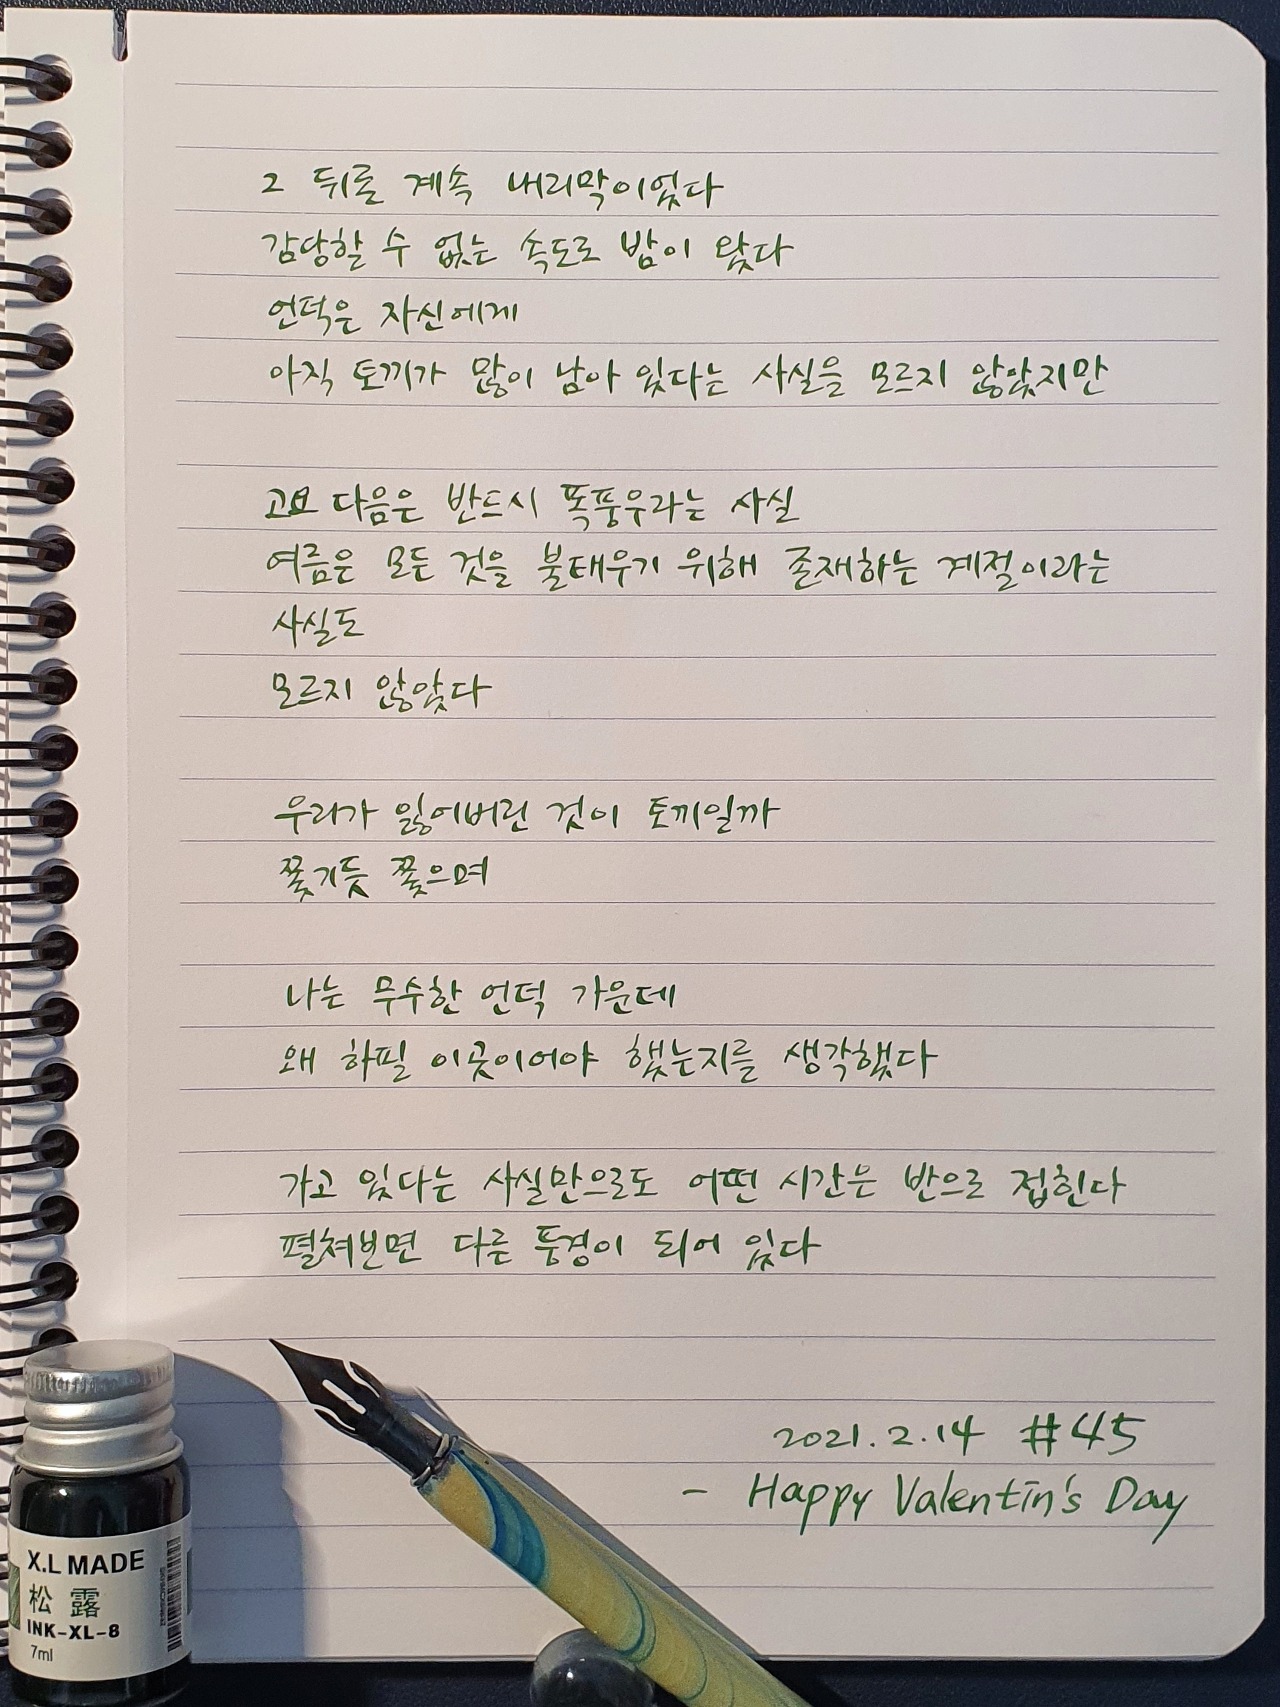 그 뒤론 계속 내리막이었다
감당할 수 없는 속도로 밤이 왔다
언덕은 자신에게
아직 토끼가 많이 남아 있다는 사실을 모르지 않았지만
고요 다음은 반드시 폭풍우라는 사실
여름은 모든 것을 불태우기 위해 존재하는 계절이라는
사실도
모르지 않았다
우리가 잃어버린 것이 토끼일까
쫓기듯 쫓으며
나는 무수한 언덕 가운데
왜 하필 이곳이어야 했는지를 생각했다
가고 있다는 사실만으로도 어떤 시간은 반으로 접힌다
펼쳐보면 다른 풍경이 되어 있다
2021.2.14 #45
- Happy Valentin's Day
X.L MADE
松露
INK-XL-8
7ml